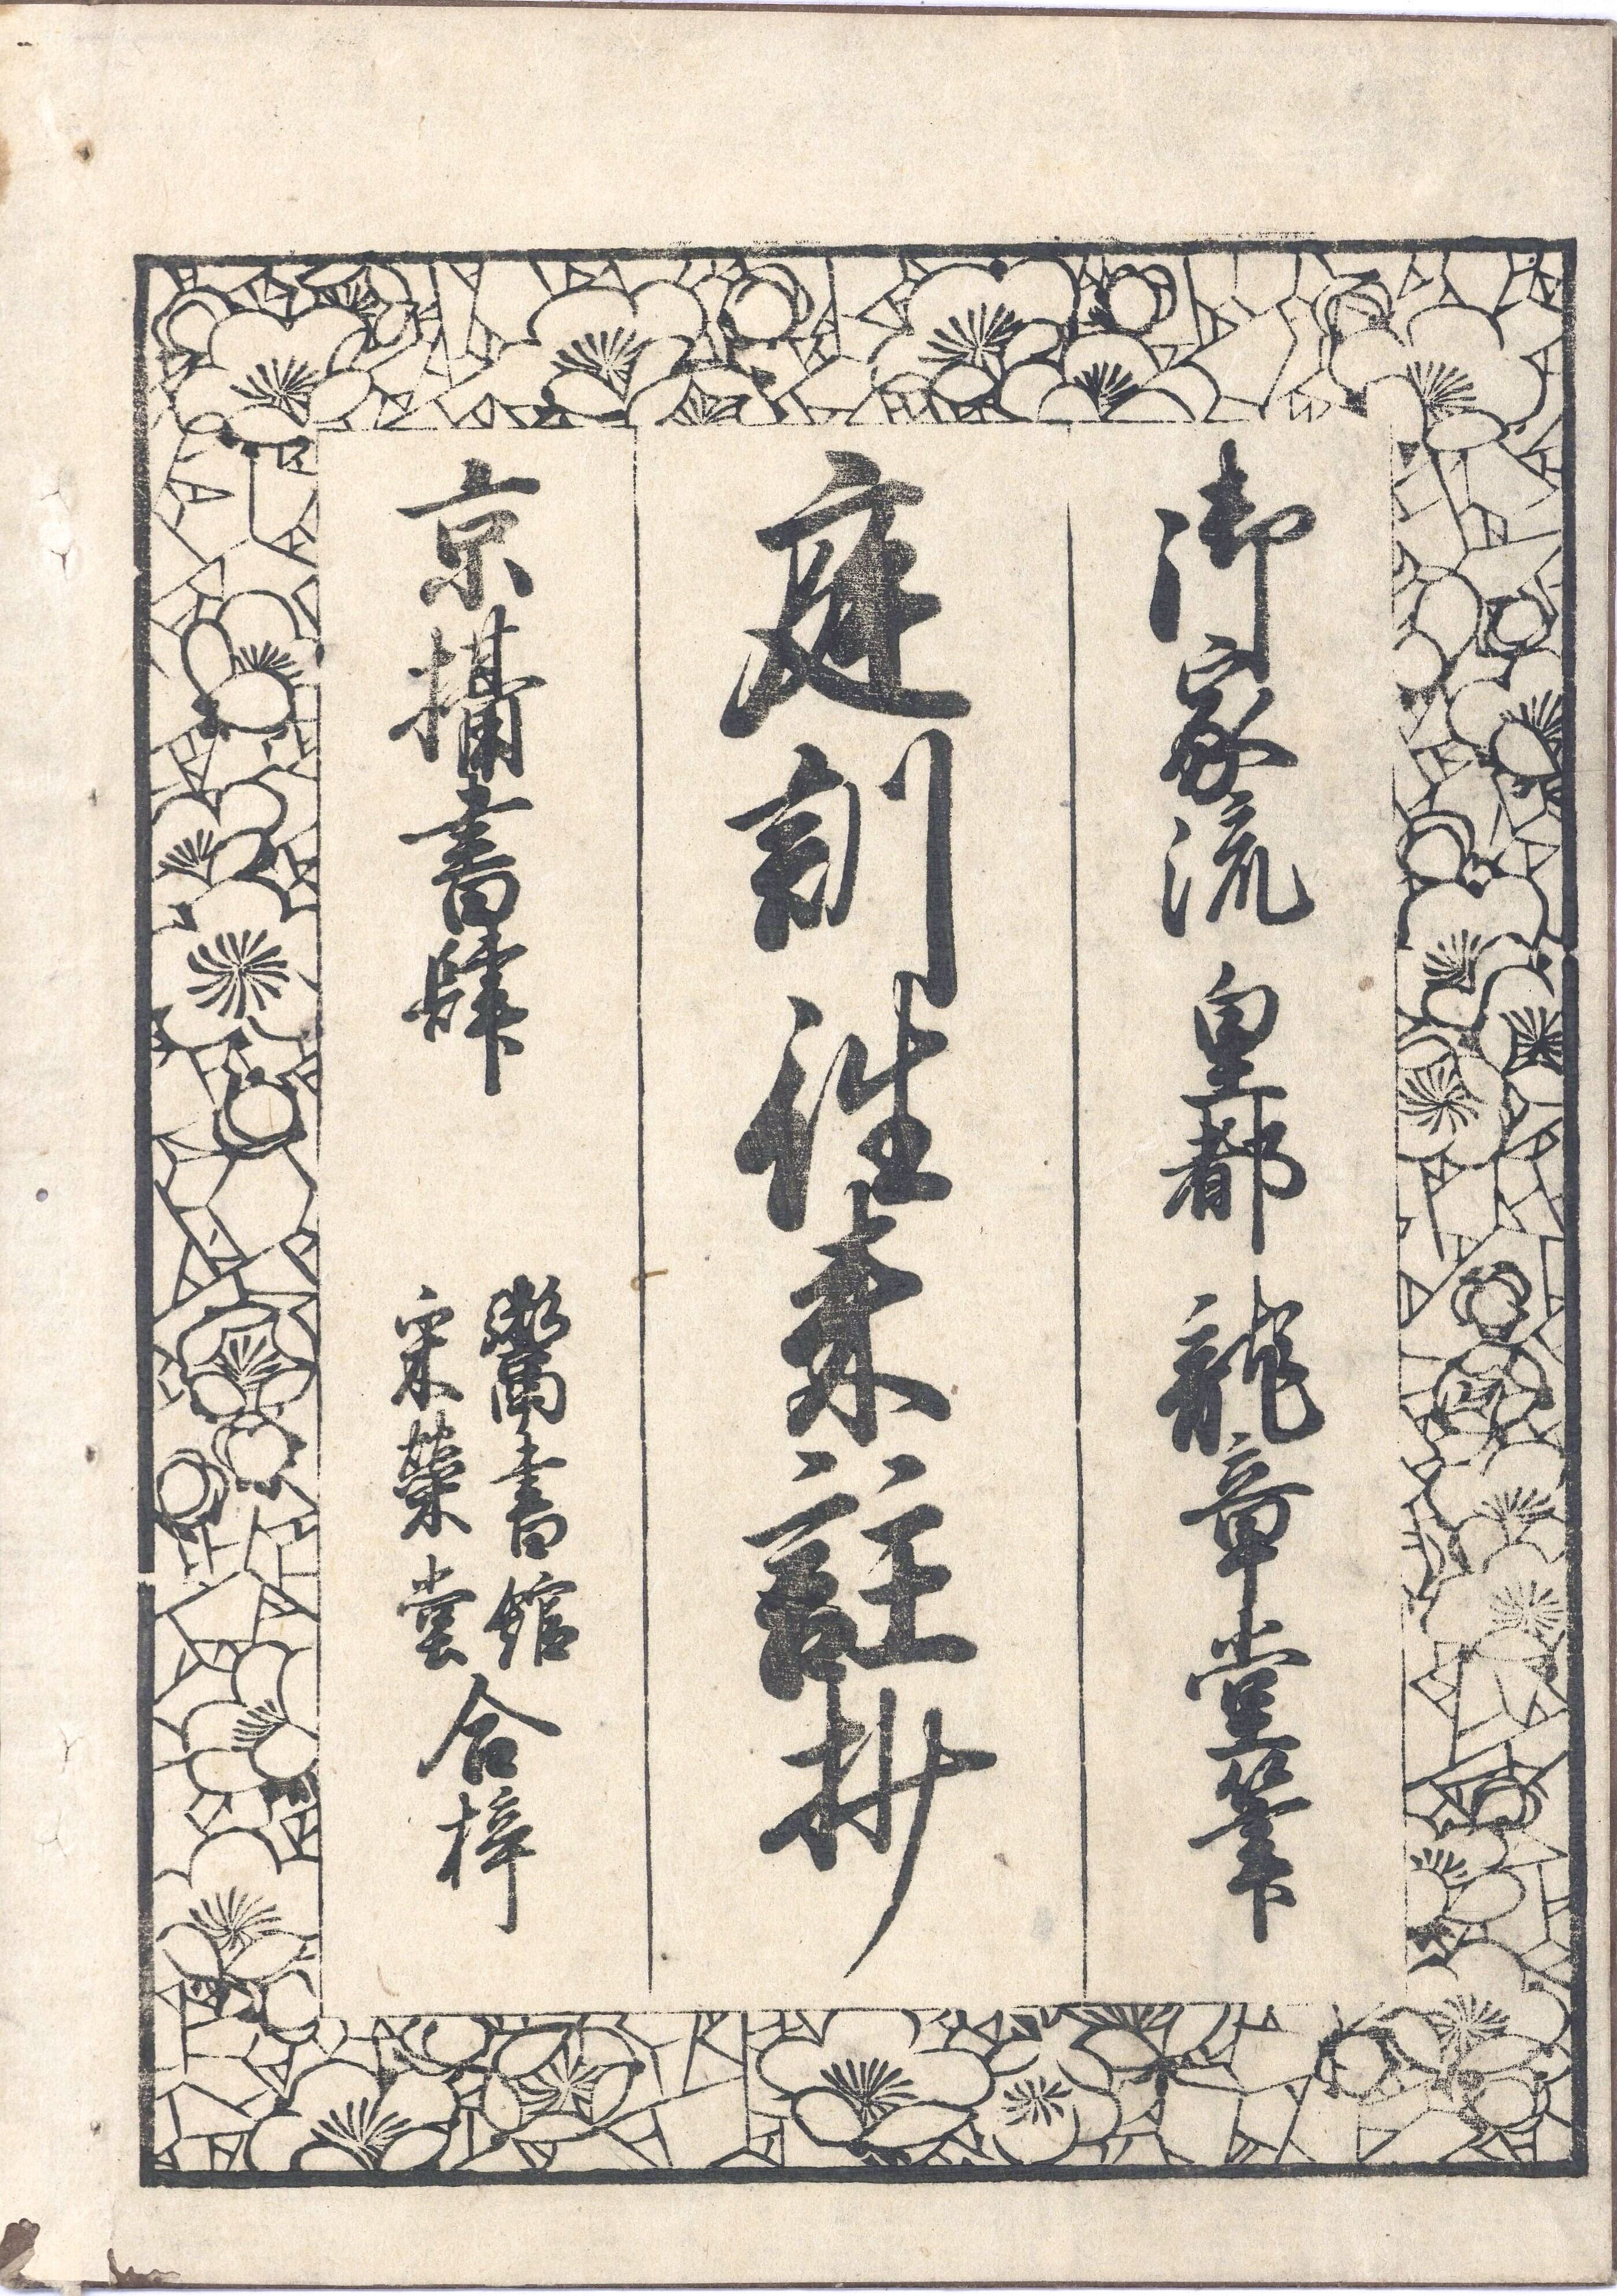 御家流 皇都 龍章堂筆
庭訓往来註抄
京攝書肆
鬻書館
宋榮堂
合梓